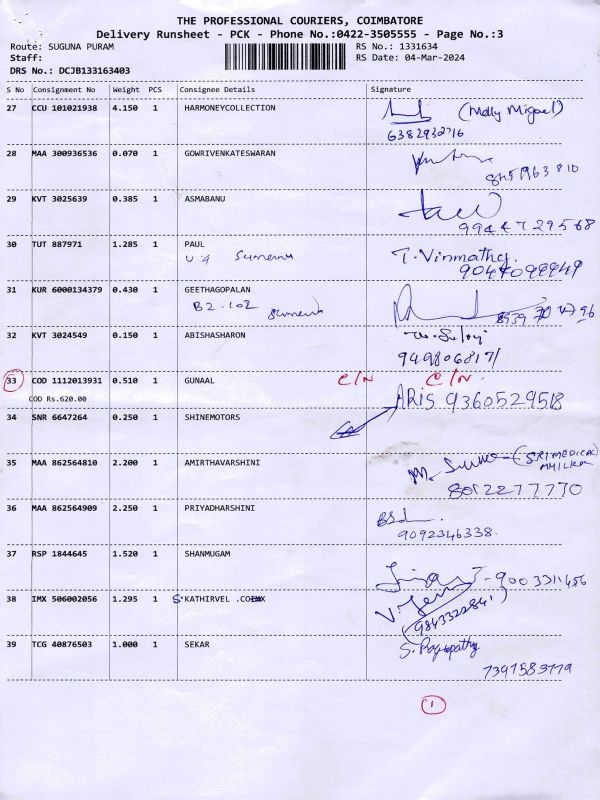 THE PROFESSIONAL COURIERS, COIMBATORE
Delivery Runsheet - PCK - Phone No.:0422-3505555 - Page No.:3
Route: SUGUNA PURAM RS No.: 1331634
Staff: RS Date: 04-Mar-2024
DRS No.: DCJB133163403
S No Consignment No Weight PCS Consignee Details Signature
27 CCU 101021938 4.150 1 HARMONEYCOLLECTION
28 MAA 300936536 0.070 1 GOWRIVENKATESWARAN
29 KVT 3025639 0.385 1 ASMABANU
9944729568
30 TUT 887971 1.285 1 PAUL T. Vinmathy
31 KUR 6000134379 0.430 1 GEETHAGOPALAN
B2-102
32 KVT 3024549 0.150 1 ABISHASHARON
33 COD 1112013931 0.510 1 GUNAAL C/N C/N.
COD Rs.620.00
ARIS 9360529518
34 SNR 6647264 0.250 1 SHINEMOTORS
35 MAA 862564810 2.200 1 AMIRTHAVARSHINI (SRI MEDICAL
8012277770
36 MAA 862564909 2.250 1 PRIYADHARSHINI
9092346338
37 RSP 1844645 1.520 1 SHANMUGAM
9003311456
38 IMX 506002056 1.295 1 S KATHIRVEL .CO
(9843322841)
39 TCG 40876503 1.000 1 SEKAR
1